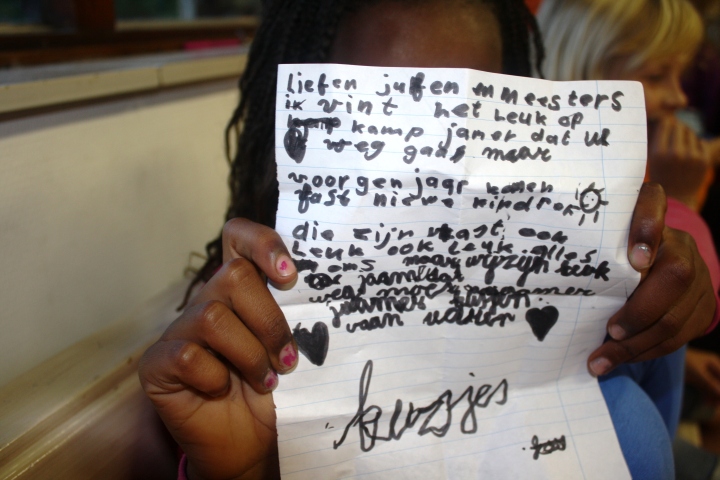 liefen jufen mmeesters
ik vint het leuk op
kamp jamer dat ul
weg gaat maar
voorgen jaar komen
fast niewe kindren
die zijn vast ook
leuk ook leuk alles
ons maar wijzijn leuk
jaamer
weg moet
jaamer tusen
vaan
kusjes